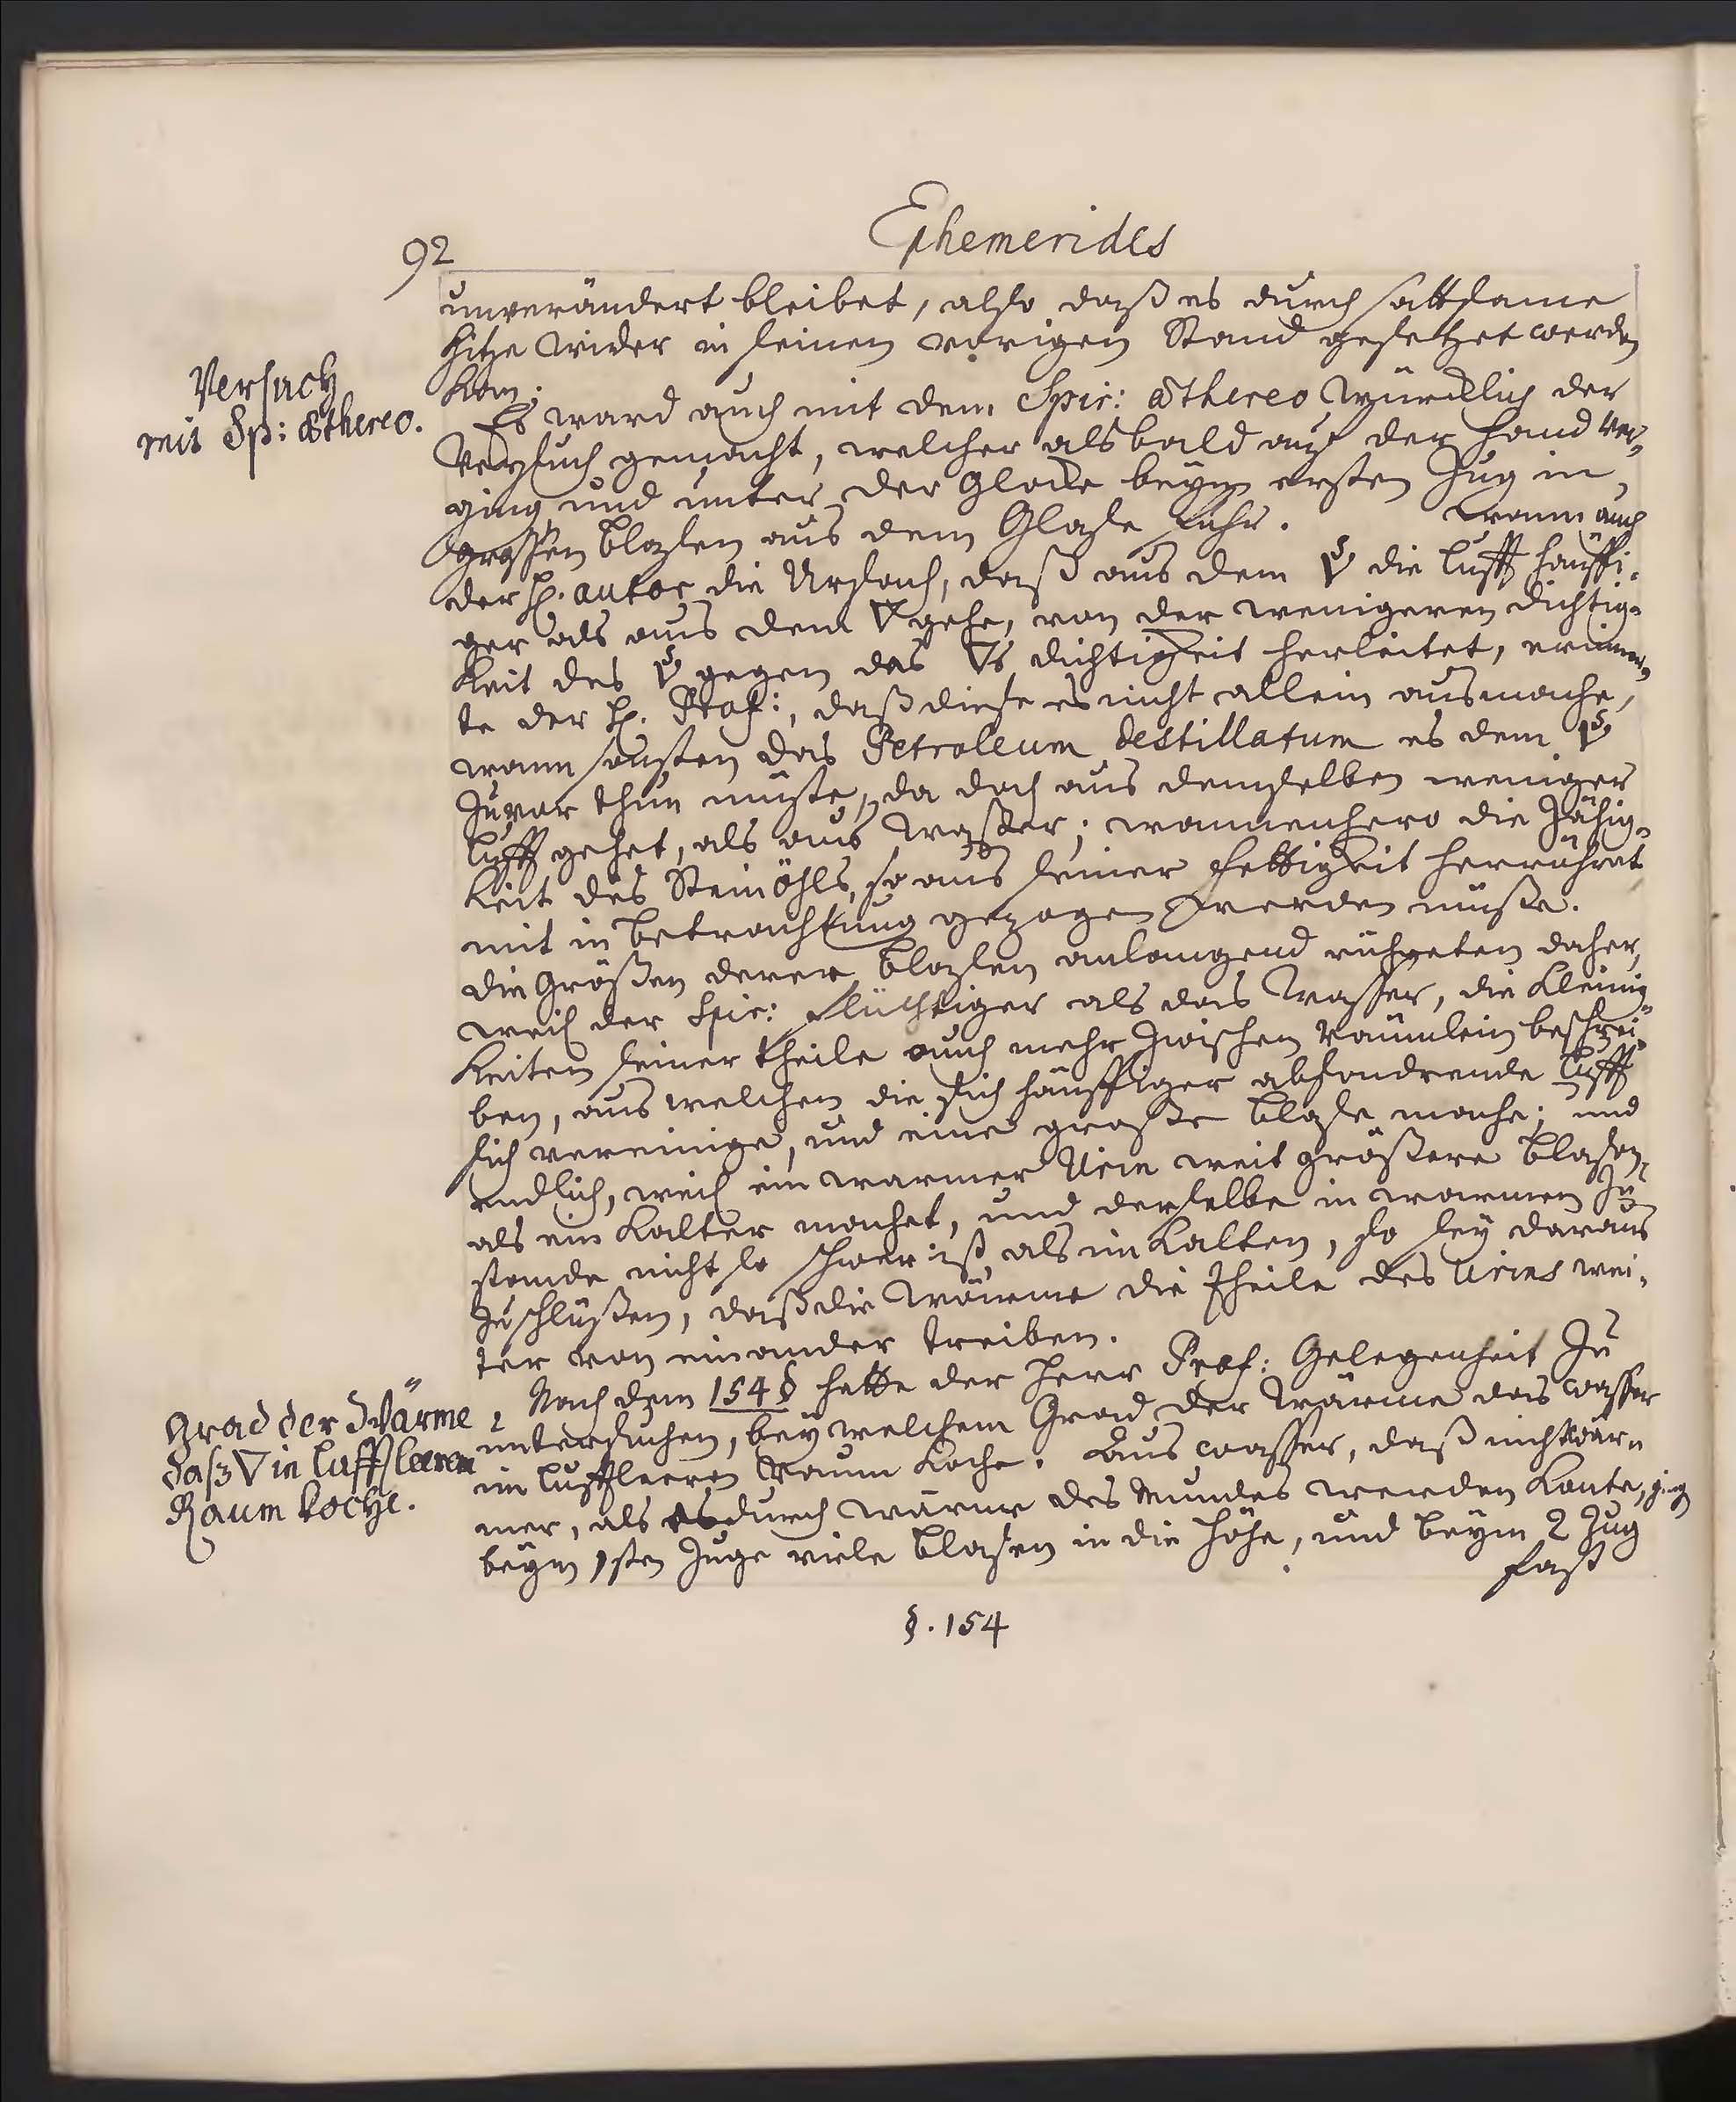 92
Ephemerides
unverändert bleibet, also daß es durch sattsame
Hitze wider in seinen vorigen Stand gesetzet werden
kan.
Versuch
mit Sp: æthereo.
Es ward auch mit dem Spir: æthereo würcklich der
Versuch gemacht, welcher alsbald auf der Hand ver„
ging und unter der Glocke beym ersten Zug in
grossen Blasen aus dem Glase fuhr. Wann auch
der H. autor die Ursach, daß aus dem 🜄 die Lufft häuffi„
ger als aus dem ▽ gehe, von der wenigeren Dichtig„
keit des gegen des ▽s Dichtigkeit herleitet, erinner„
te der H. Prof:, daß diese es nicht allein ausmache,
wann sonsten das Petroleum destillatum es dem
zuvor thun müste, da doch aus demselben weniger
Lufft gehet, als aus Wasser; wannenhero die Zähig„
keit des Steinöhls, so aus seiner Fettigkeit herrühret
mit in Betrachtung gezogen werden müste.
Die Größen derer Blasen anlangend rühreten daher,
weil der Spir: flüchtiger als das Wasser, die Kleinig„
keiten seiner Theile auch mehr Zwischen Räumlein beschrei„
ben, aus welchen die sich häuffiger absondrende Lufft
sich vereinige, und eine grosse Blase mache; und
endlich, weil ein warmer Urin weit größere Blasen,
als ein kalter machet, und derselbe in warmen Zu„
stande nicht so schwer ist, als im kalten, so sey daraus
zuschlüßen, daß die Wärme die Theile des Urins wei„
ter von einander treiben.
Grad der Wärme
daß ▽ in lufftleeren
Raum koche.
Nach dem 154 § hatte der Herr Prof: Gelegenheit zu
untersuchen, bey welchem Grad der Wärme das Wasser
im lufftleeren Raum koche. Aus Wasser, daß nicht wär„
mer, als es durch Wärme des Mundes werden konte, ging
beym 1sten Zuge viele Blasen in die Höhe, und beym 2 Zug
fast
§. 154